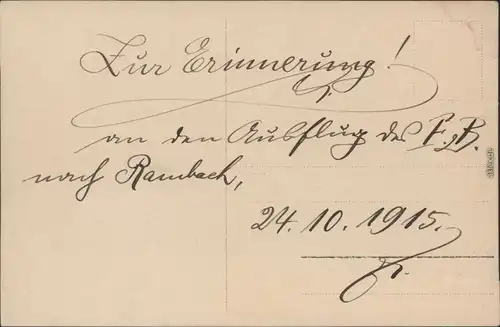 Zur Erinnerung!
an den Ausflug des F. B.
nach Rambach,
24.10.1915.